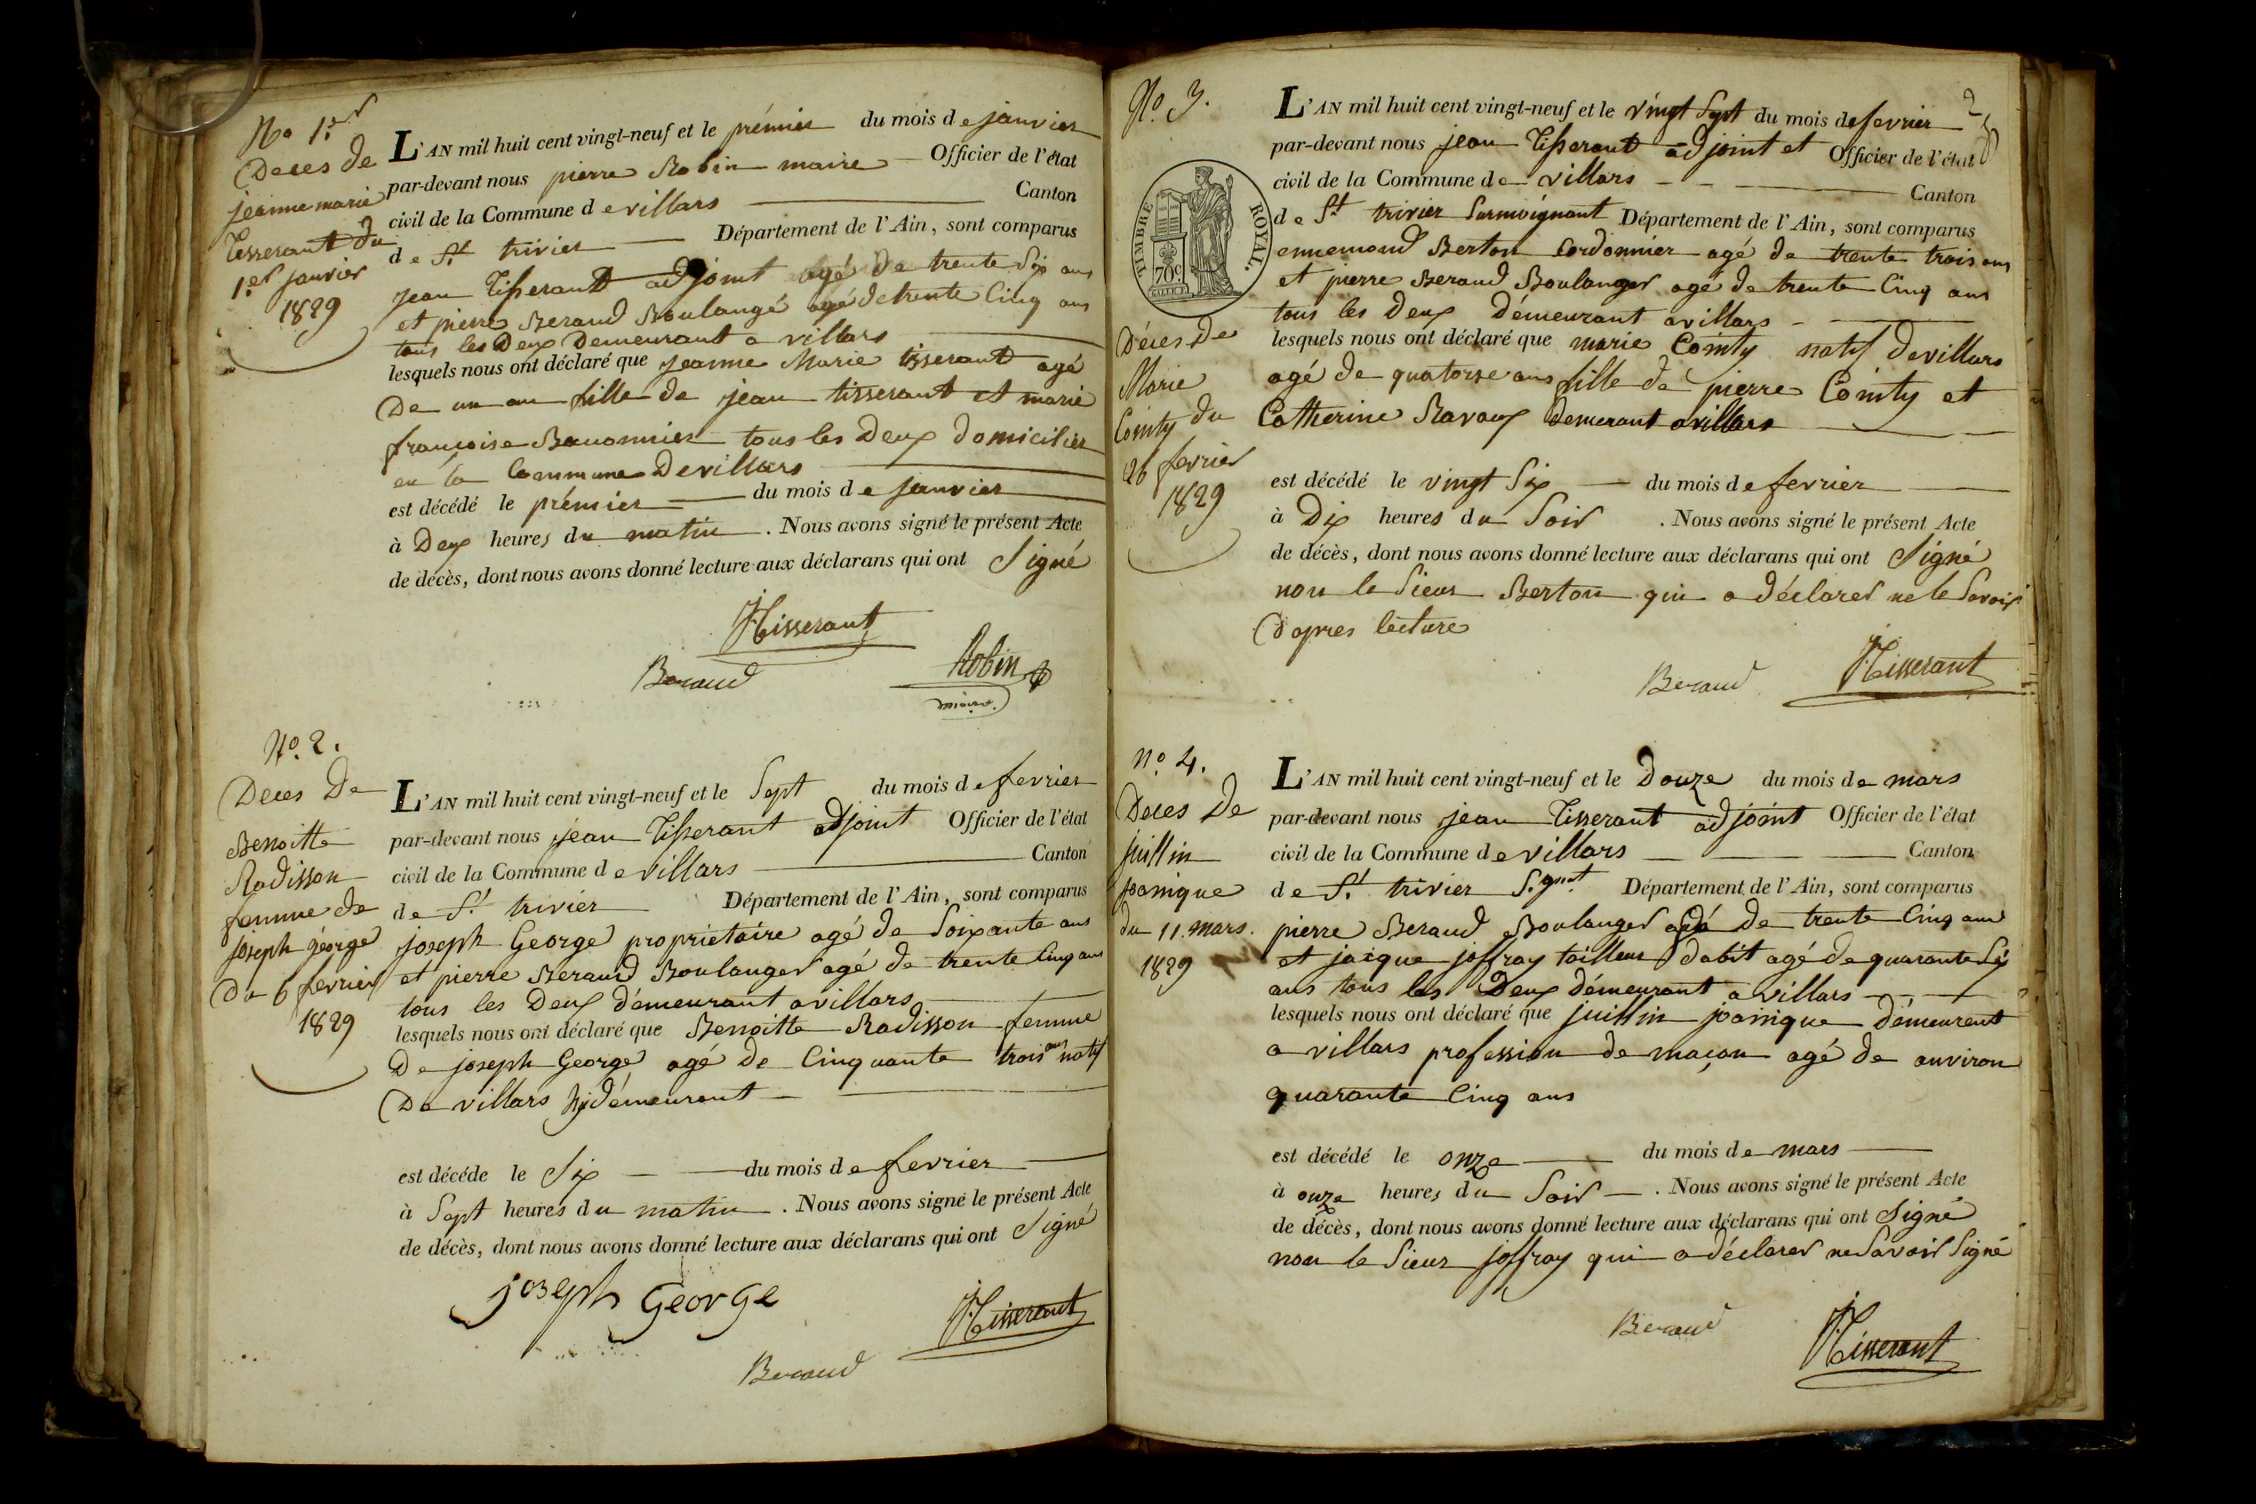 No 1.er
Deces de
jeanne marie
Tisserant du
1.er janvier
1829
L'AN mil huit cent vingt-neuf et le prémier du mois de janvier
par-devant nous pierre Robin maire Officier de l'état
civil de la Commune de villars Canton
de St trivier Département de l'Ain, sont comparus
jean Tisserant adjoint agé de trente Six ans
et pierre Beraud Boulangé agé de trente Cinq ans
tous les Deux Demeurant a villars
lesquels nous ont déclaré que jeanne Marie tisserant agé
De un an fille de jean tisserant et marie
françoise tous les Deux domicilier
en la Commune De villars
est décédé le prémier du mois de janvier
à Deux heures du matin. Nous avons signé le présent Acte
de décès, dont nous avons donné lecture aux déclarans qui ont Signé
JTisserant
Beraud
Robin
maire
No. 2.
Deces De
Benoitte
Radisson
femme de
joseph george
Du 6 fevrier
1829
L'AN mil huit cent vingt-neuf et le Sept du mois de fevrier
par-devant nous jean Tisserant adjoint Officier de l'état
civil de la Commune de villars Canton
de St trivier Département de l'Ain, sont comparus
joseph George proprietaire agé de Soixante ans
et pierre Beraud Boulanger agé de trente Cinq ans
tous les Deux démeurant a villars
lesquels nous ont déclaré que Benoitte Radisson femme
De joseph George agé de Cinquante trois ans natif
De villars y démeurent
est décéde le Six du mois de fevrier
à Sept heures du matin. Nous avons signé le présent Acte
de décès, dont nous avons donné lecture aux déclarans qui ont Signé
joseph George
JTisserant
Beraud
2
No. 3.
TIMBRE ROYAL.
70c
Déces De
Marie
Cointy du
26 fevrier
1829
L'AN mil huit cent vingt-neuf et le vingt Sept du mois de fevrier
par-devant nous jean Tisserant adjoint et Officier de l'état
civil de la Commune de villars Canton
de St trivier Surmoignant Département de l'Ain, sont comparus
ennemond Berton Cordonnier agé de trente trois ans
et pierre Beraud Boulanger agé de trente Cinq ans
tous les Deux Démeurant a villars
lesquels nous ont déclaré que marie Cointy natif De villars
agé de quatorse ans fille de pierre Cointy et
Catherine Ravoux Demeurant a villars
est décédé le vingt Six du mois de fevrier
à Dix heures du Soir. Nous avons signé le présent Acte
de décès, dont nous avons donné lecture aux déclarans qui ont Signé
non le Sieur Berton qui a déclarer ne le Savoir
D'apres lecture
Beraud
JTisserant
no. 4.
Deces De
juillin
du 11. mars.
1829
L'AN mil huit cent vingt-neuf et le Douze du mois de mars
par-devant nous jean Tisserant adjoint Officier de l'état
civil de la Commune de villars Canton
de St trivier S.gnt. Département de l'Ain, sont comparus
pierre Beraud Boulanger agé de trente Cinq ans
et jacque joffray tailleur Dabit agé de quarante Six
ans tous les Deux démeurant a villars
lesquels nous ont déclaré que juillin démeurent
a villars profession de maçon agé de anviron
quarante Cinq ans
est décédé le onze du mois de mars
à onze heures du Soir. Nous avons signé le présent Acte
de décès, dont nous avons donné lecture aux déclarans qui ont Signé
non le Sieur joffray qui a déclarer ne Savoir Signé
Beraud
JTisserant